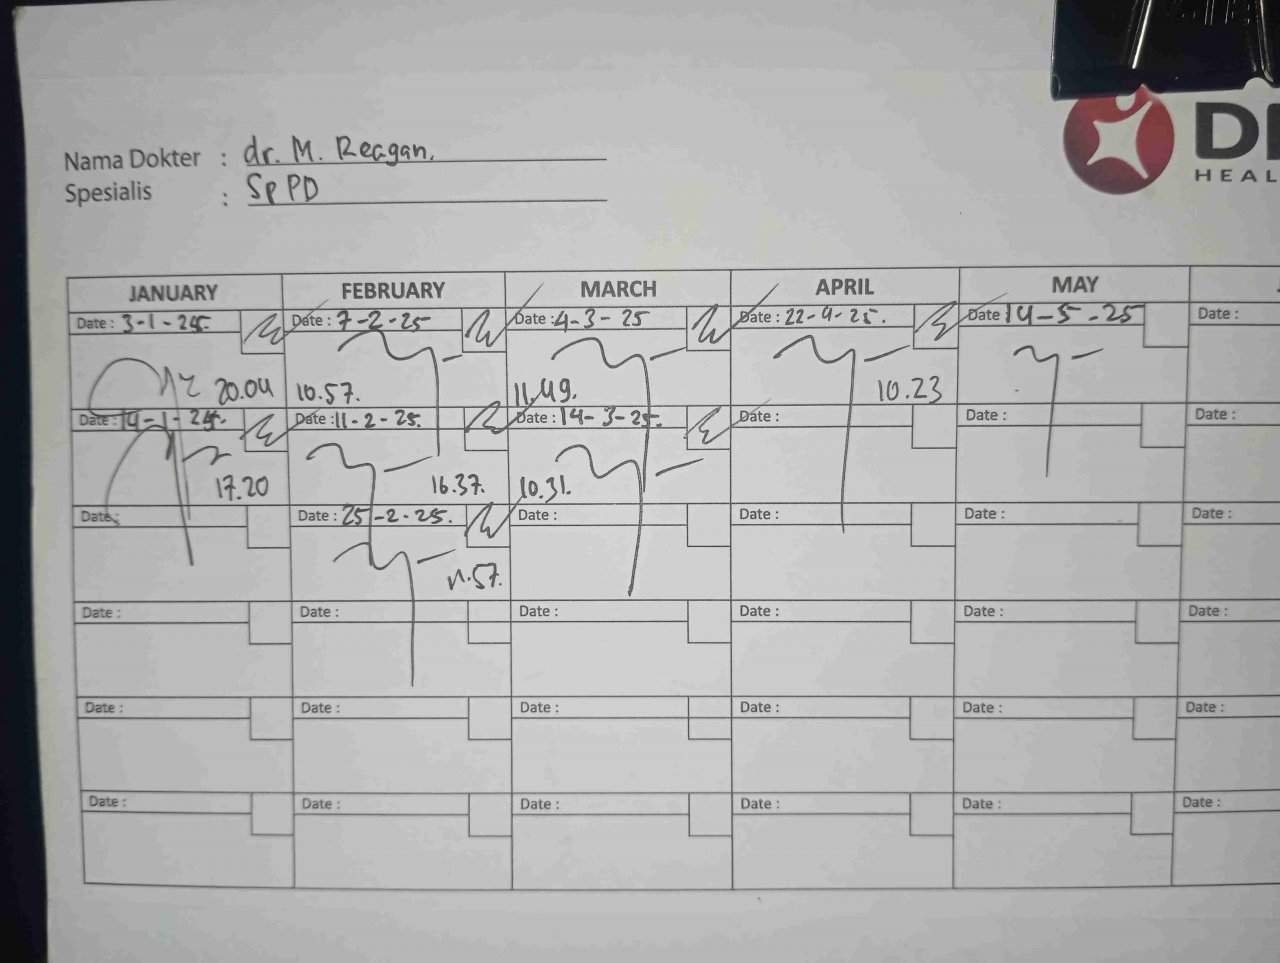 Nama Dokter : dr. M. Reagan.
Spesialis : SpPD
HEAL
JANUARY FEBRUARY MARCH APRIL MAY
Date : 3-1-25 Date : 7-2-25 Date : 4-3-25 Date : 22-4-25. Date 14-5-25 Date :
20.04 10.57. 11.49. 10.23
Date : 14-1-25. Date : 11-2-25. Date : 14-3-25. Date : Date : Date :
17.20 16.37. 10.31.
Date : Date : 25-2-25. Date : Date : Date : Date :
Date : Date : Date : Date : Date : Date :
Date : Date : Date : Date : Date : Date :
Date : Date : Date : Date : Date : Date :